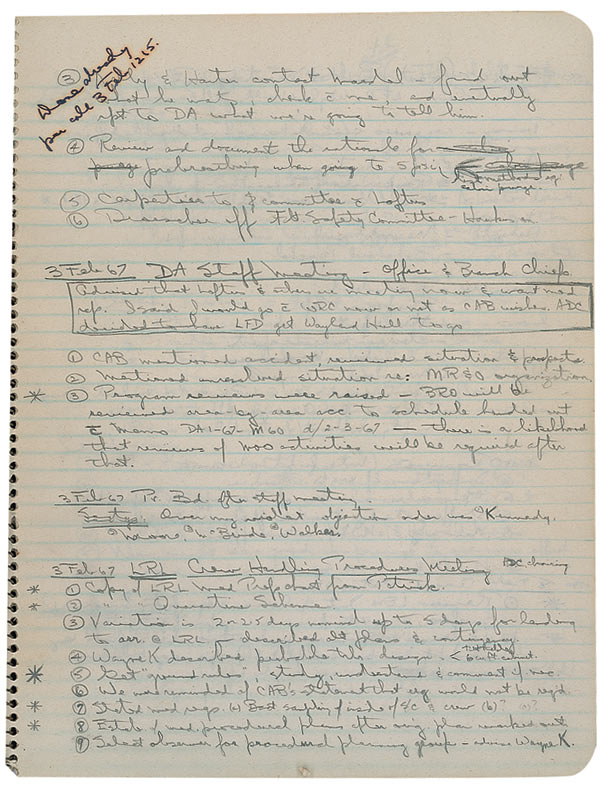 Done already
per cab 3 Feb 1215.
③ & Harter contact Mandel - find out
what he wants, check c̄ me, and eventually
rpt to DA what we're going to tell him.
④ Review and document the rationale for
prebreathing when going to 5 psi,
purge.
⑤ to & committee & Loftus
⑥ off Flt Safety Committee - Hawkins on
3 Feb 67 DA Staff Meeting - Office & Branch Chiefs
Advised that Loftus & other me meeting now & want med
rep. I said I would go c̄ WRC now or not as CAB wishes. ADC
decided to have LFD get Wayland Hull to go
① CAB mentioned accident, reviewed situation & prospects.
② Mentioned unresolved situation re: MR&O organization.
* ③ Program reviews were raised - BRO will be
reviewed area-by-area acc. to schedule handed out
c̄ Memo DA1-67-M60 d/2-3-67 — there is a likelihood
that reviews of MOO activities will be required after
that.
3 Feb 67 Pr. Bd. after staff meeting.
Over my objection order was ① Kennedy,
② Moore, ③ McBride, ④ Walker.
3 Feb 67 LRL Crew Handling Procedures Meeting chairing
* ① Copy of LRL Med Prefs chart from
* ② " " Quarantine Scheme
③ Variation is 2-2.5 days nominal up to 5 days for landing
to arr. @ LRL - described plans & contingency.
④ Wayne K described probable design. <
* ⑤ Get "ground rules", study, understand & comment if nec.
⑥ We were reminded of CAB's statement that would not be reqd.
* ⑦ Stated med reqs. (a) Bact sampling of inside of S/C & crew (b)? ?
* ⑧ Estab / med. procedural plan after plan worked out
⑨ Select observer for procedural planning group - advise Wayne K.